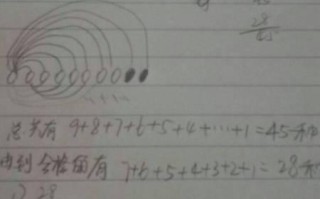 28
总共有 9+8+7+6+5+4+⋯+1=45种
合格的有 7+6+5+4+3+2+1=28种
28